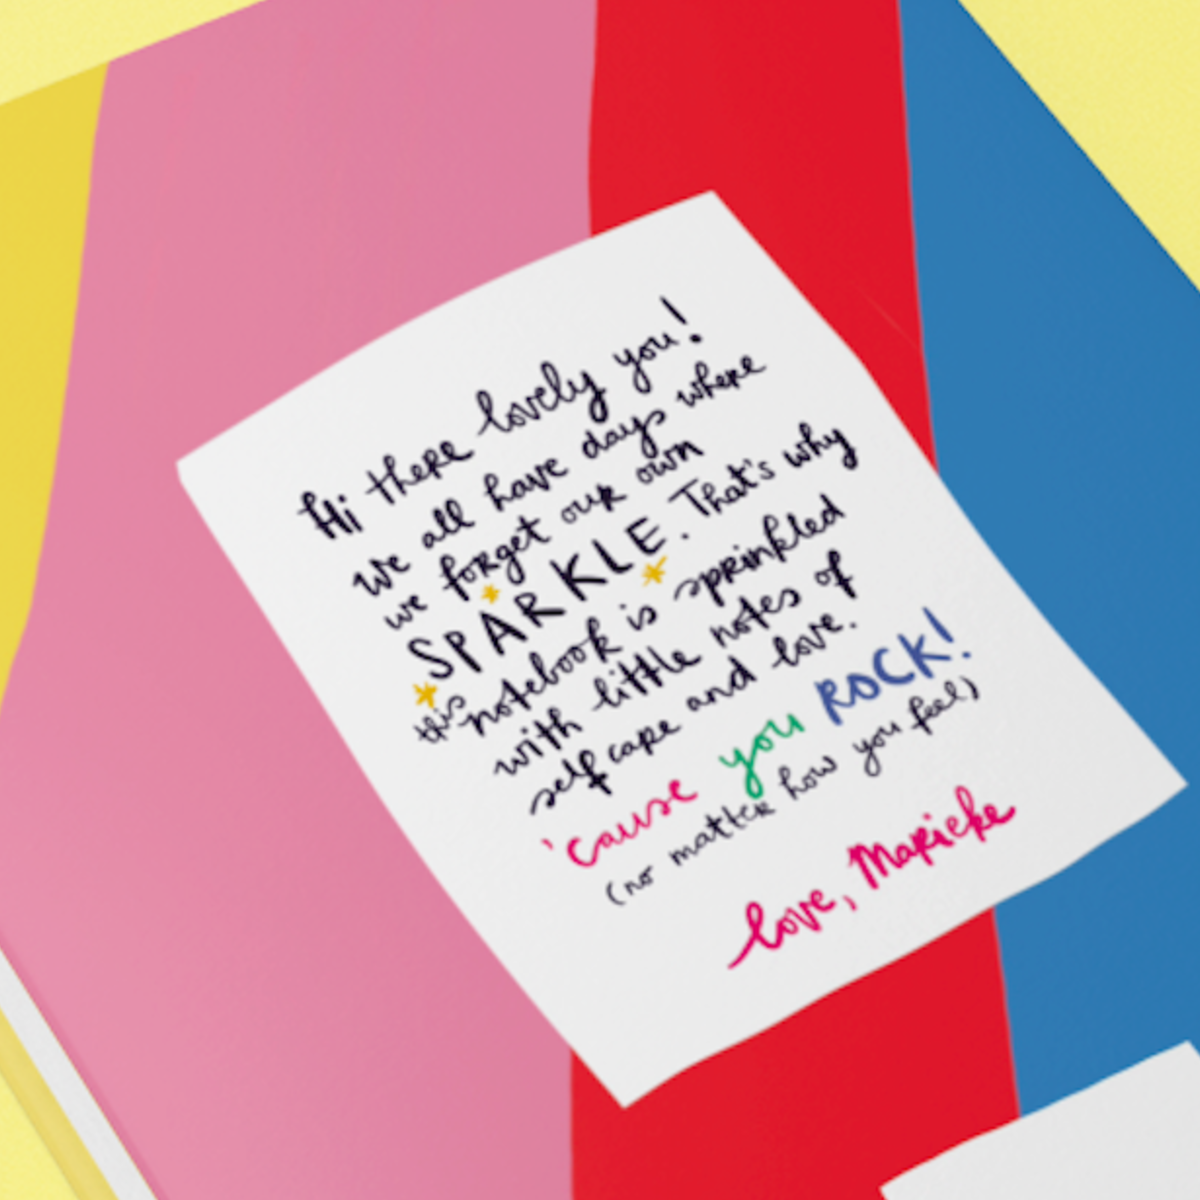 Hi there lovely you!
We all have days where
we forget our own
SPARKLE. That's why
this notebook is sprinkled
with little notes of
self care and love.
'cause you ROCK!
(no matter how you feel)
love, Marieke